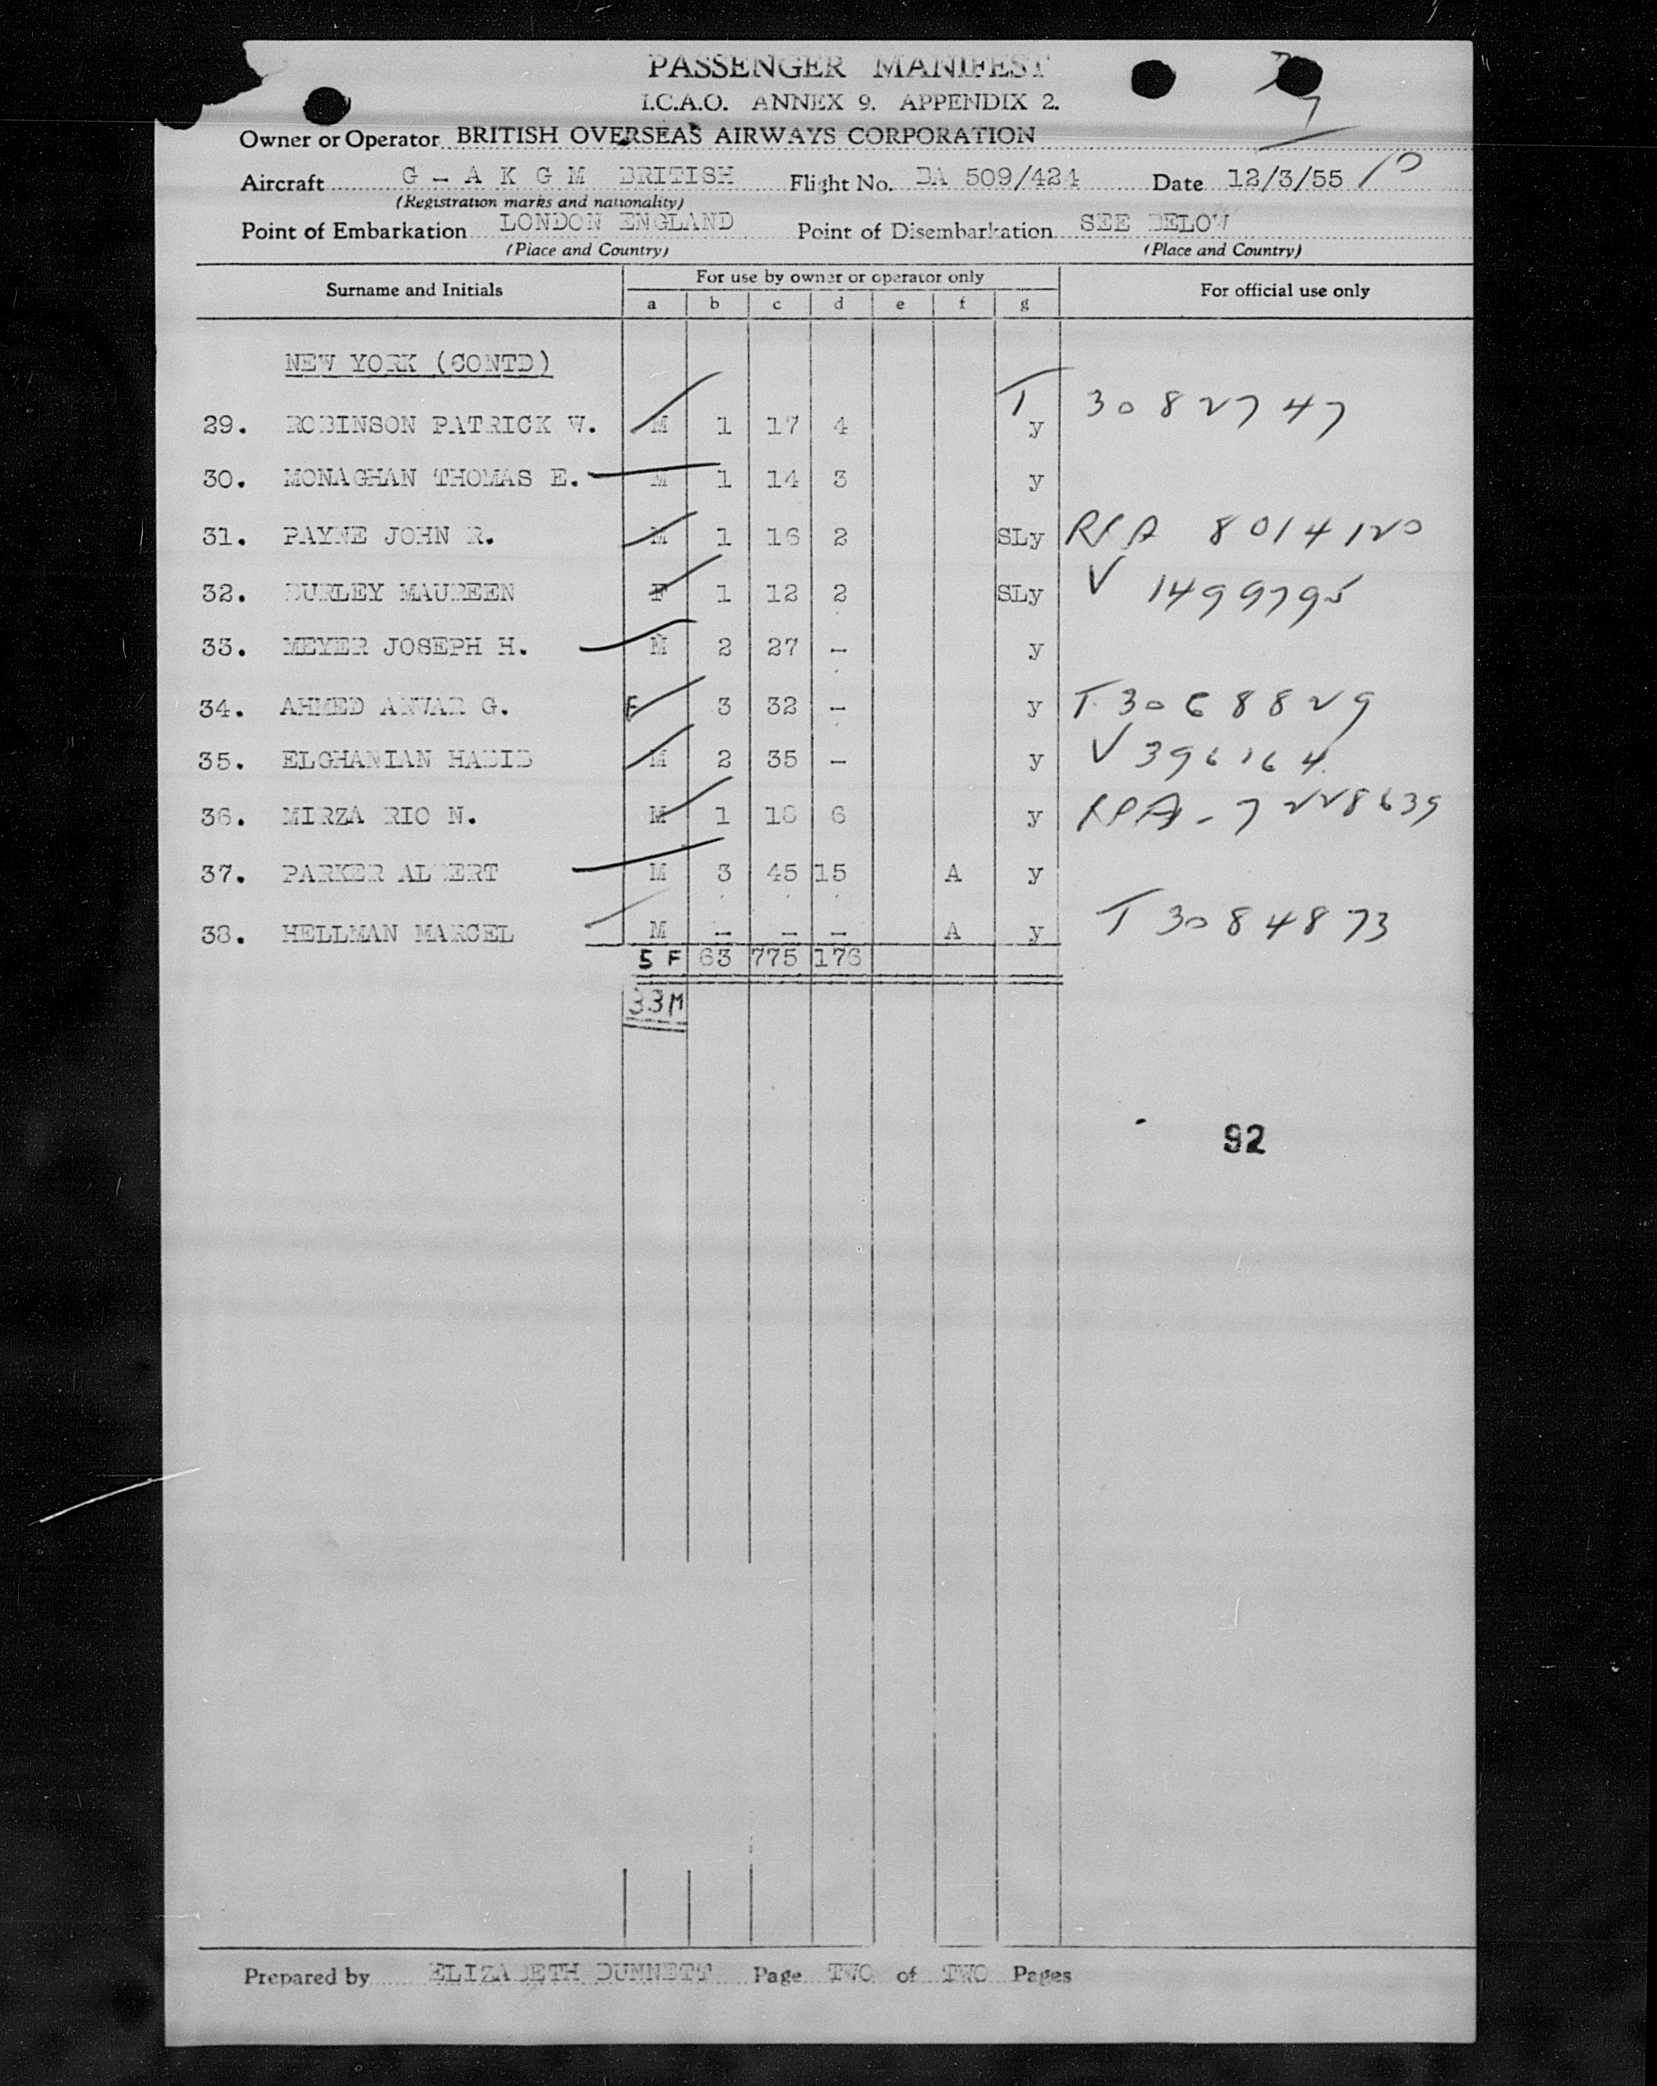 PASSENGER MANIFEST
I.C.A.O. ANNEX 9. APPENDIX 2.
Owner or Operator BRITISH OVERSEAS AIRWAYS CORPORATION
Aircraft G - A K G M BRITISH Flight No. BA 509/424 Date 12/3/55
(Registration marks and nationality)
Point of Embarkation LONDON ENGLAND Point of Disembarkation SEE BELOW
(Place and Country) (Place and Country)
Surname and Initials For use by owner or operator only For official use only
a b c d e f g
NEW YORK (CONTD)
29. ROBINSON PATRICK W. M 1 17 4 y T 3082747
30. MONAGHAN THOMAS E. M 1 14 3 y
31. PAYNE JOHN R. M 1 16 2 SLy RPA 8014120
32. DURLEY MAUREEN F 1 12 2 SLy V 1499795
33. MEYER JOSEPH H. M 2 27 - y
34. AHMED ANWAR G. F 3 32 - y T. 3068829
35. ELGHANIAN HABIB M 2 35 - y V 396164
36. MIRZA RIO N. M 1 18 6 y RPA - 7228639
37. PARKER ALBERT M 3 45 15 A y
38. HELLMAN MARCEL M - - - A y T 3084873
5 F 63 775 176
33M
92
Prepared by ELIZABETH DUNNETT Page TWO of TWO Pages